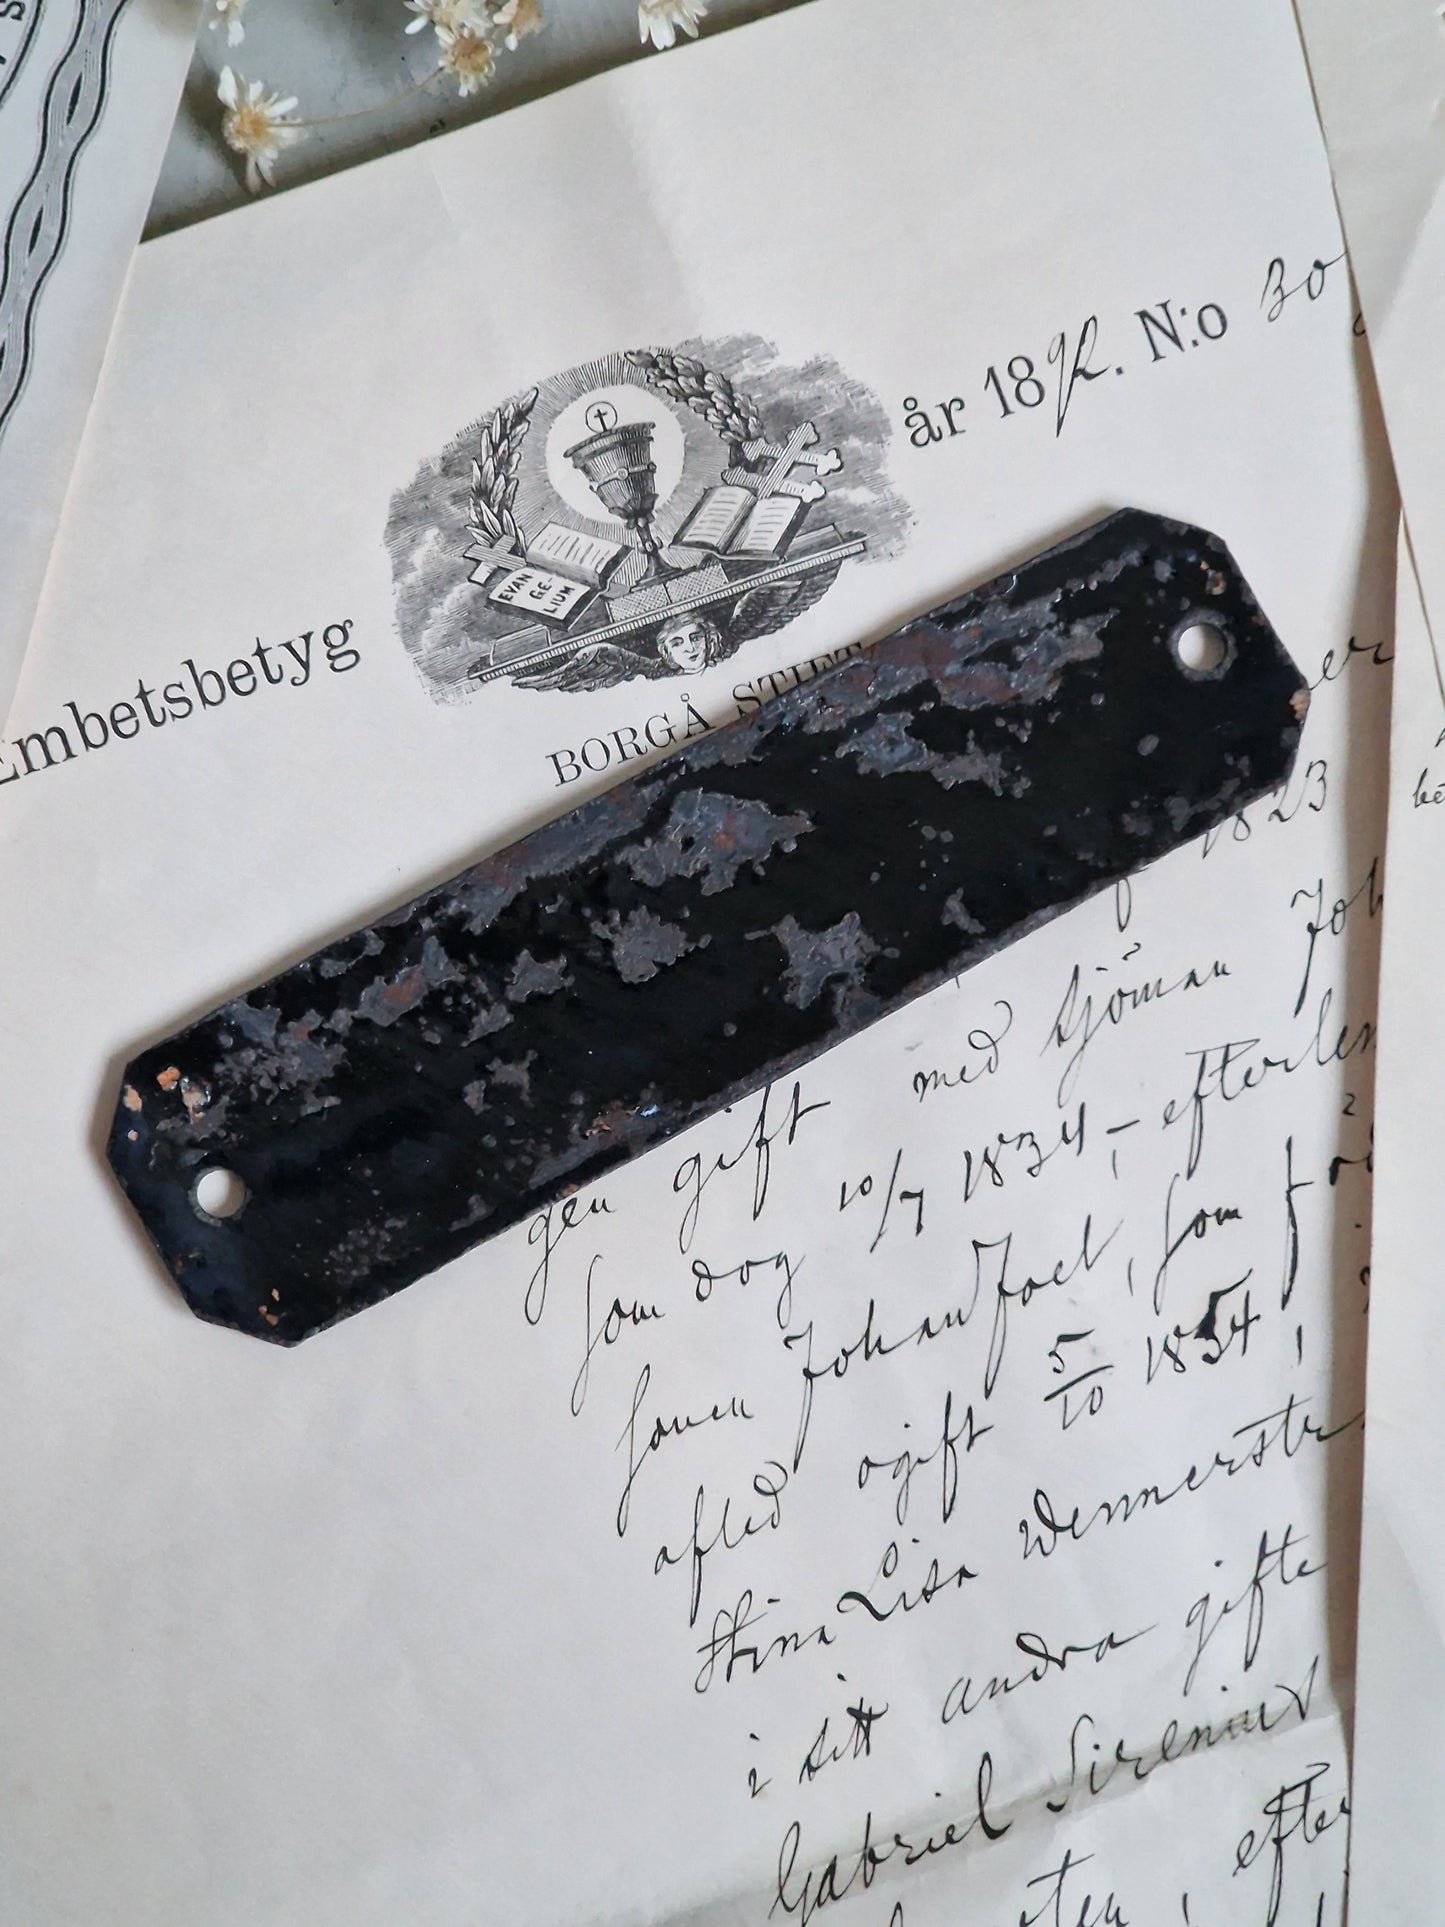 Embetsbetyg år 1892. N:o 30
EVAN
GE-
LIUM
BORGÅ STIFT
1823
gen gift med sjöman Joh
som dog 10/7 1834, efterlem
sonen Johan Joel, som f
afled ogift 5/10 1854,
Stina Lisa Wennerstr
i sitt andra gifte
Gabriel Sirenius
efter